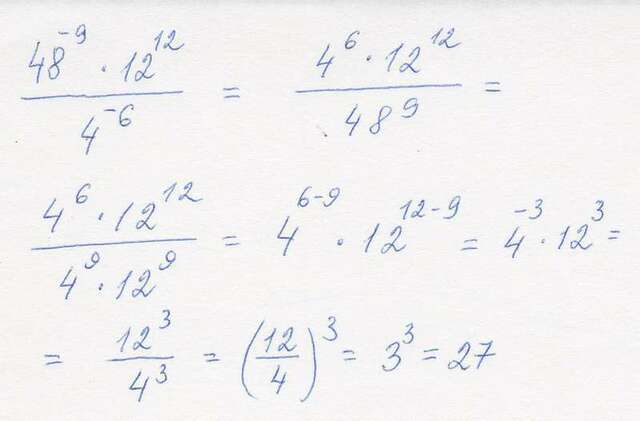 48⁻⁹ · 12¹² / 4⁻⁶ = 4⁶ · 12¹² / 48⁹ =
4⁶ · 12¹² / 4⁹ · 12⁹ = 4⁶⁻⁹ · 12¹²⁻⁹ = 4⁻³ · 12³ =
= 12³ / 4³ = (12 / 4)³ = 3³ = 27